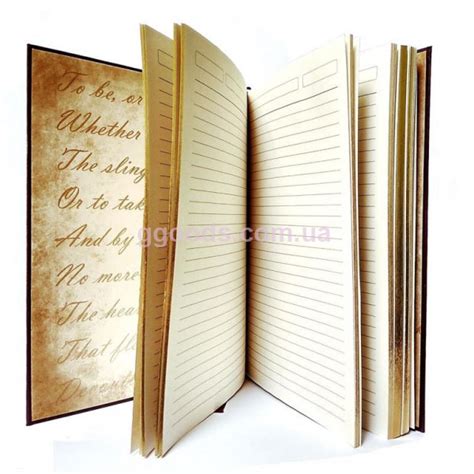 To be, or
Whether
The sling
Or to tak
And by
No more
The hea
That fl
Devout
ggoods.com.ua